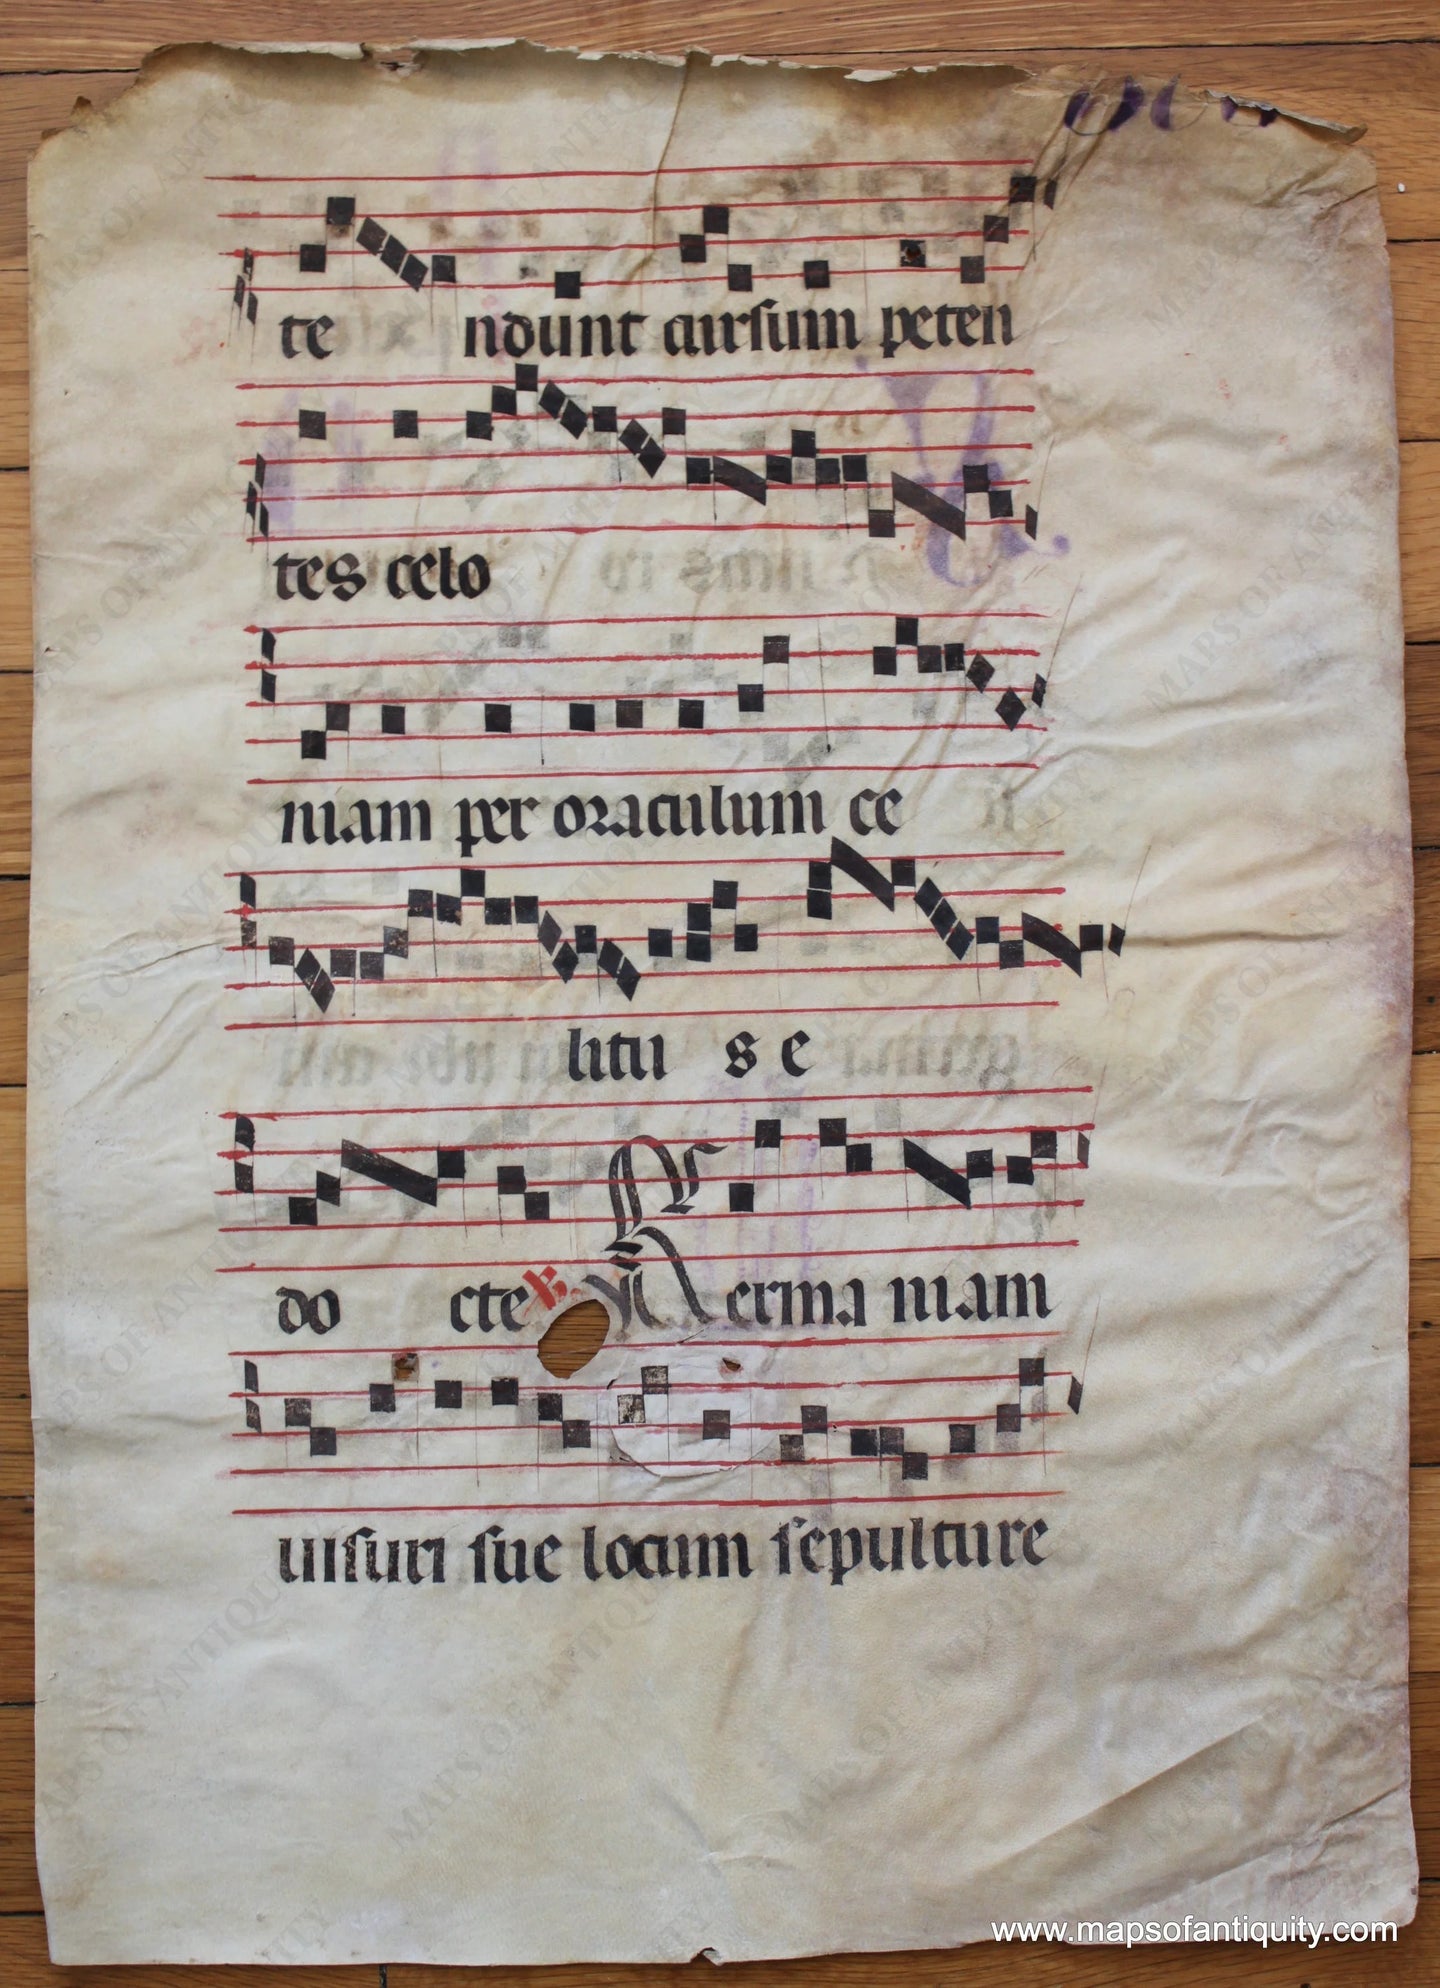 te ndunt cursum peten
tes celo
niam per oraculum ce
litu s e
do cte
erma niam
uisuri sue locum sepulture
www.mapsofantiquity.com